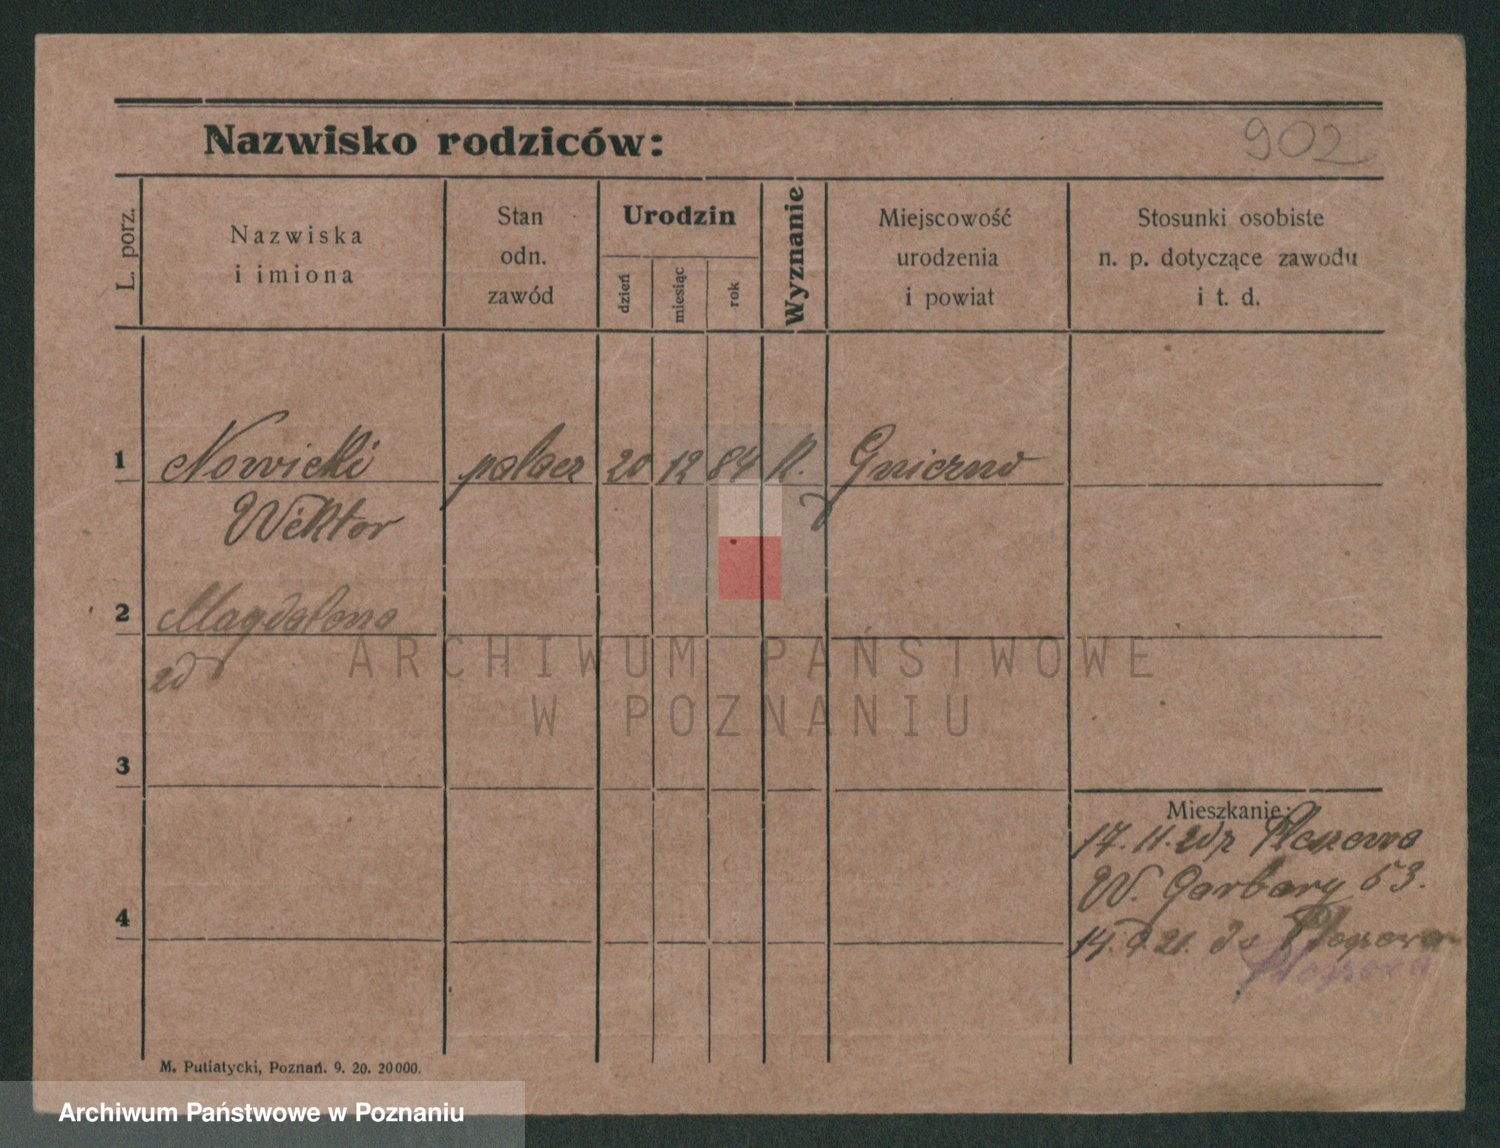 902
Nazwisko rodziców:
L. porz.
Nazwiska
i imiona
Stan
odn.
zawód
Urodzin
dzień
miesiąc
rok
Wyznanie
Miejscowość
urodzenia
i powiat
Stosunki osobiste
n. p. dotyczące zawodu
i t. d.
1 Nowicki palacz 20 12 84 R. Gniezno
Wiktor
2 Magdalena
ARCHIWUM PAŃSTWOWE
W POZNANIU
3
Mieszkanie:
17. 11. 20 z
W. Garbary 53.
4
14. 9 21. do
M. Putiatycki, Poznań. 9. 20. 20000.
Archiwum Państwowe w Poznaniu